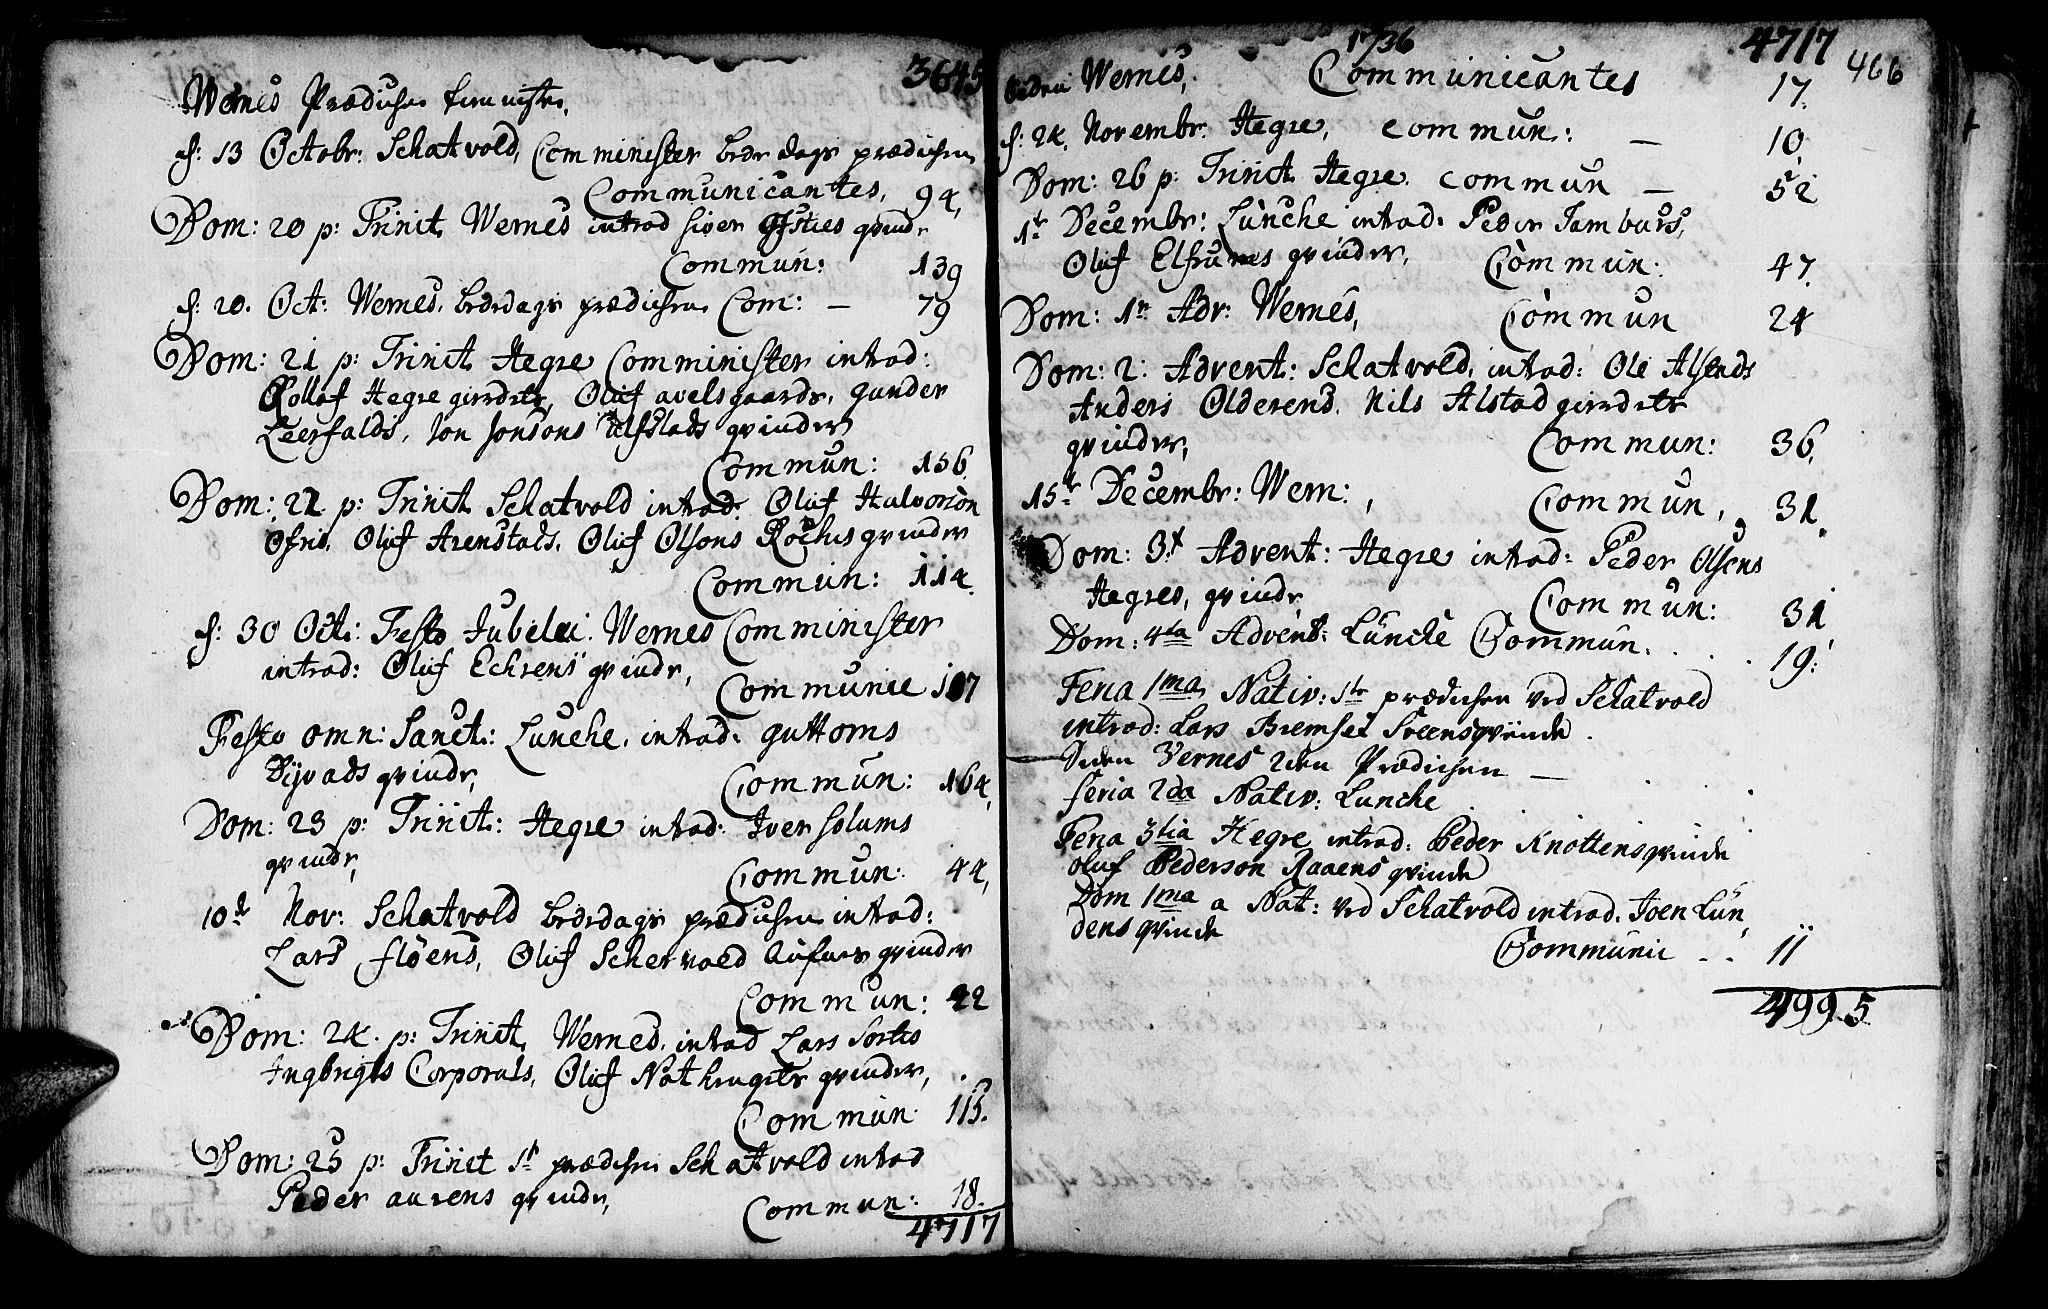 3645
Wernes Prædichen
f: 13 Octobr: Schatvold, Comminister bededags prædichen
Communicantes, 94,
Dom: 20 p: Trinit. Wernes introd siver gvinde
Commun: 139
f: 20. Oct: Wernes. bededags prædichen Com: — 79
Dom: 21 p: Trinit. Hegre Comminister introd:
Rollof Hegre Oluf avelsgaards, gunder
Leerfalds, Jon Jonsons gvinder
Commun: 156
Dom: 22 p: Trinit Schatvold introd: Oluf Halvorson
Oluf Arenstads. Oluf Olsons gvinder
Commun: 114.
f: 30 Oct: Festo Jubelæi. Wernes Comminister
introd: Oluf Echrens gvinde,
Communic 107
Festo omn: Sanct: Lunche. introd: guttoms
Dijvads gvinde,
Commun: 164,
Dom: 23 p: Trinit: Hegre introd: Iver solums
gvinde,
Commun: 44,
10de Nov: Schatvold bededags prædichen introd:
Lars flöens, Oluf Schervold gvinder
Commun: 22
Dom: 24. p: Trinit. Wernes. introd Lars
Ingbrigts Corporals, Oluf gvinder,
Commun 115.
Dom: 25 p: Trinit 1st prædichen Schatvold introd
Peder aurens gvinde,
Commun: 18.
4717
1736
4717 466
Wernes, Communicantes 17.
f: 24. Novembr. Hegre, commun: — 10
Dom: 26 p: Trinit. Hegre. commun — 52
1te Decembr: Lunche introd: Peder Tamburs,
Oluf gvinder, Commun: 47.
Dom: 1te Adv: Wernes, Commun 24
Dom: 2: Advent: Schatvold, introd: Ole
Anders Olderens. Nils Alstad
gvinder, Commun: 36.
15de Decembr: Wern:, Commun, 31.
Dom: 3. Advent: Hegre introd: Peder Olsens
Hegres, gvinde, Commun: 31
Dom: 4ta Advent: Lunche Commun. . . . 19:
Feria 1ma Nativ: 1te prædichen ved Schatvold
introd: Lars Bremset Sveensgvinde.
Vernes 2den Prædichen —
feria 2da Nativ: Lunche
Feria 3tia Hegre introd: Peder Knottensgvinde
oluf Pederson Raaens gvinde
Dom 1ma a Nat: ved Schatvold introd. Joen Lün
dens gvinde
Communic . . 11
4995